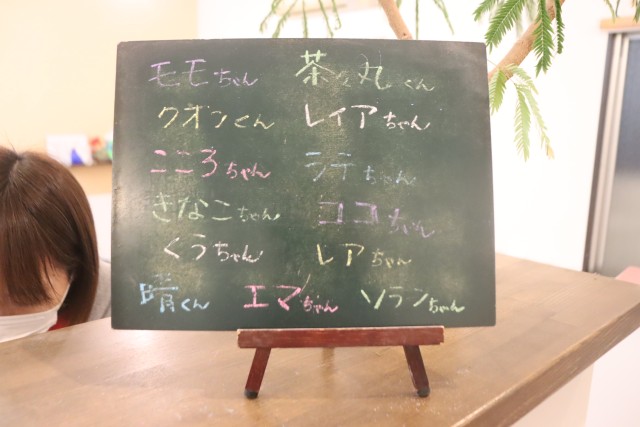 モモちゃん 茶々丸くん
クオンくん レイアちゃん
こころちゃん ラテちゃん
きなこちゃん ココちゃん
くうちゃん レアちゃん
晴くん エマちゃん ソランちゃん